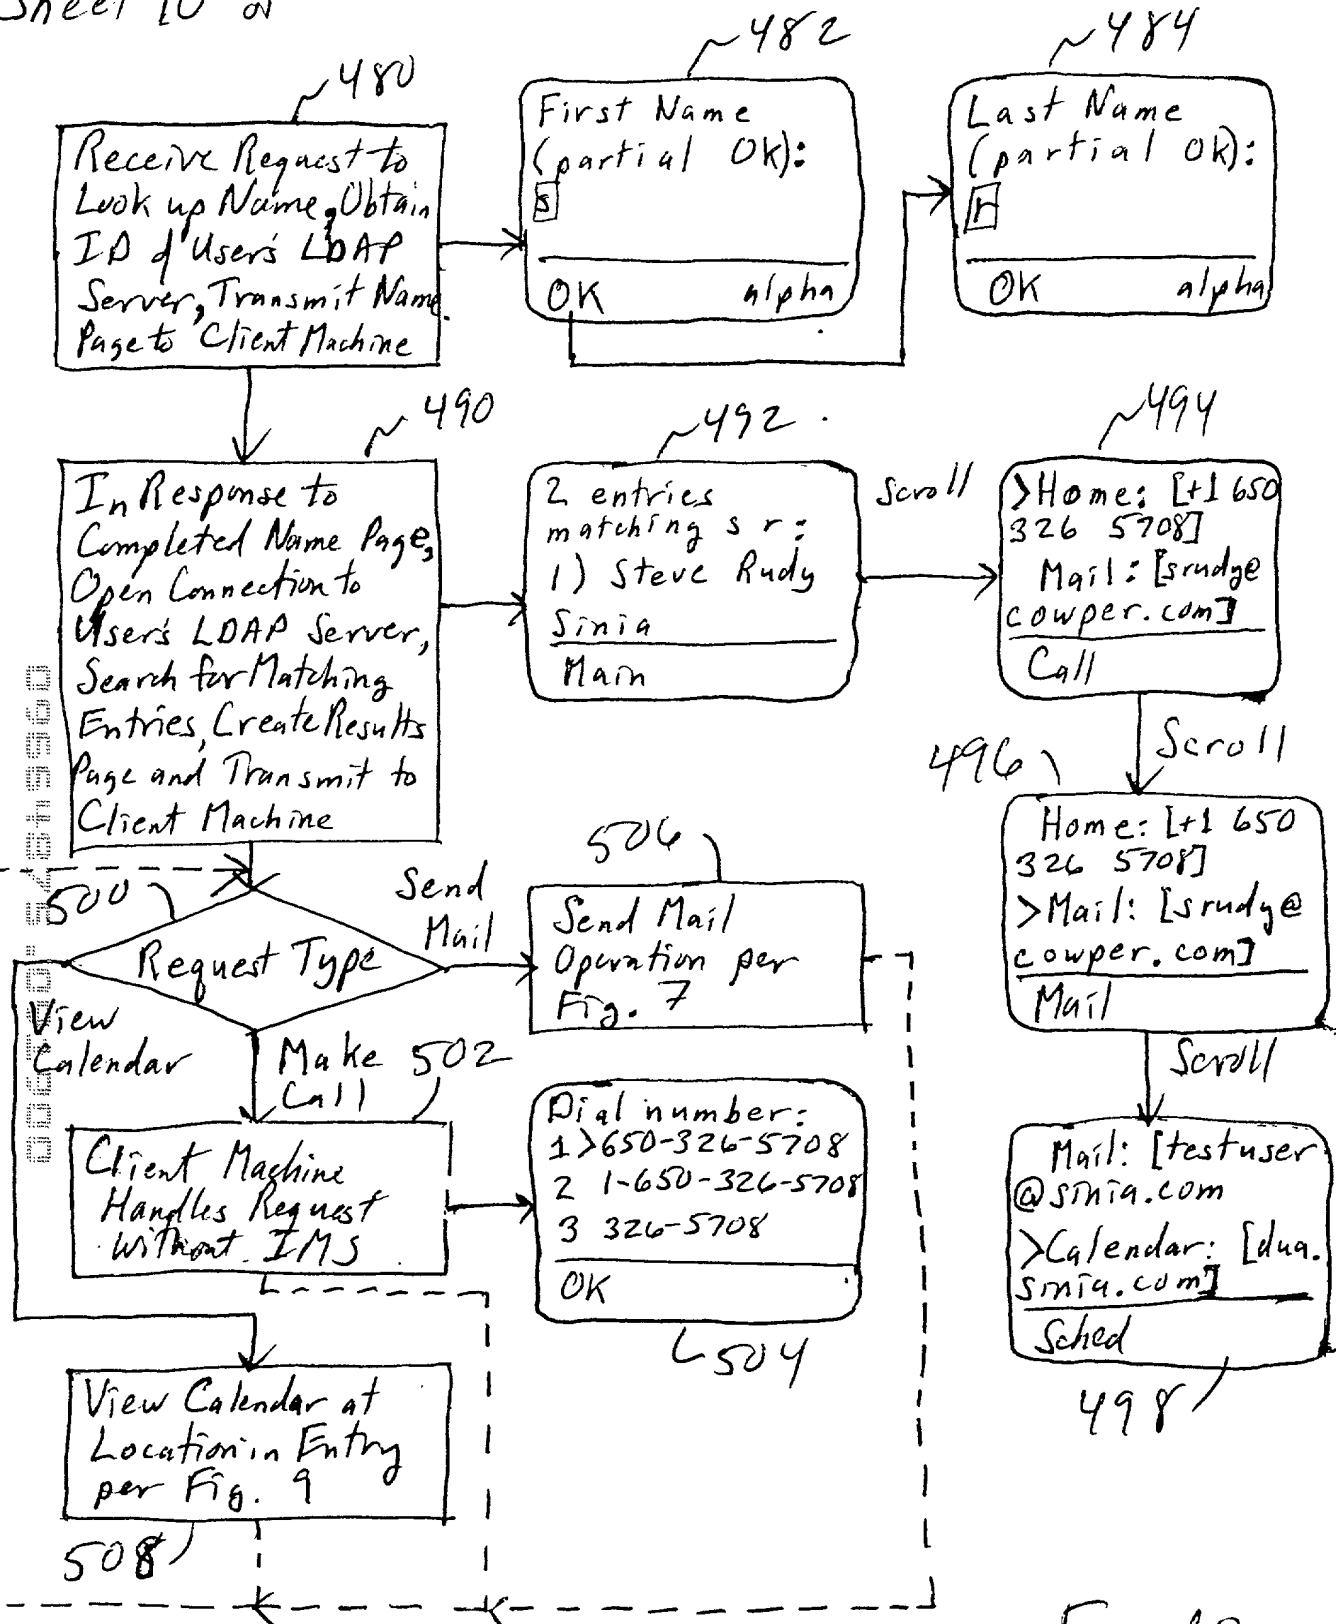 Sheet 10 of
480
Receive Request to
Look up Name, Obtain
ID of User's LDAP
Server, Transmit Name
Page to Client Machine
482
First Name
(partial OK):
s
OK alpha
484
Last Name
(partial OK):
r
OK alpha
490
In Response to
Completed Name Page,
Open Connection to
User's LDAP Server,
Search for Matching
Entries, Create Results
Page and Transmit to
Client Machine
492
2 entries
matching s r:
1) Steve Rudy
Sinia
Main
Scroll
494
>Home: [+1 650
326 5708]
Mail: [srudy@
cowper.com]
Call
Scroll
496
Home: [+1 650
326 5708]
>Mail: [srudy@
cowper.com]
Mail
Scroll
Mail: [testuser
@sinia.com
>Calendar: [dua.
sinia.com]
Sched
498
500
Request Type
Send
Mail
506
Send Mail
Operation per
Fig. 7
View
Calendar
Make
Call
502
Client Machine
Handles Request
Without IMS
Dial number:
1 >650-326-5708
2 1-650-326-5708
3 326-5708
OK
504
View Calendar at
Location in Entry
per Fig. 9
508